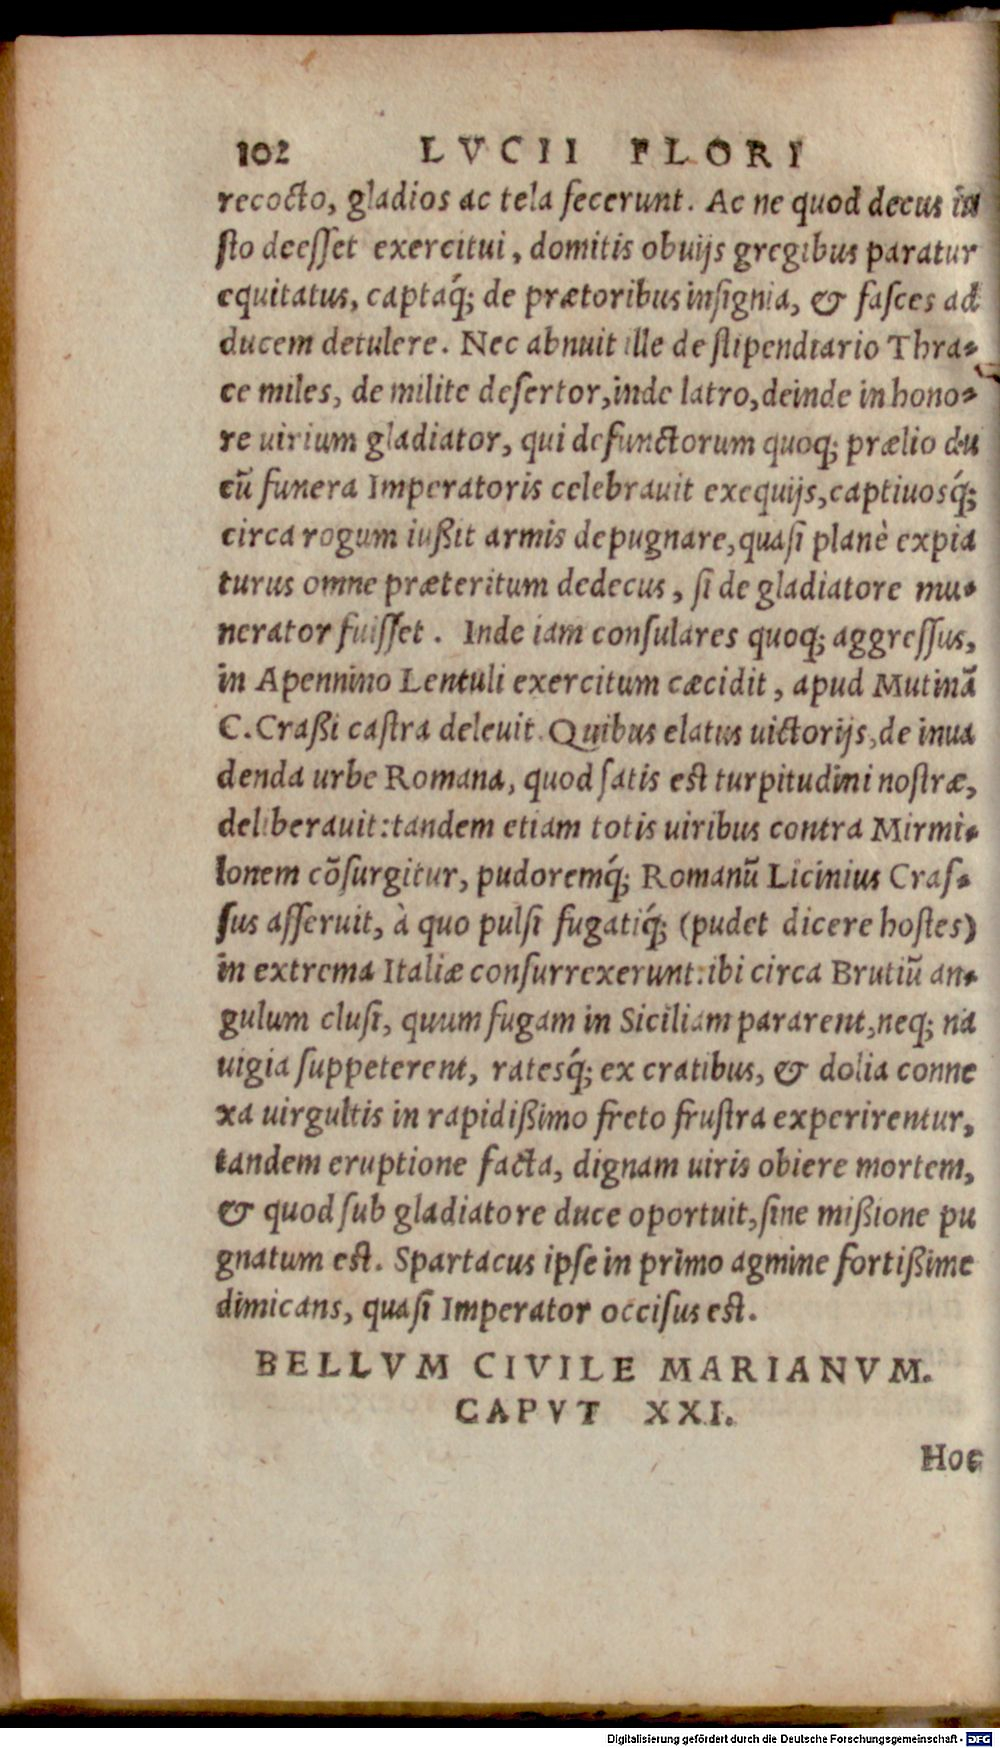 102 LVCII FLORI
recocto, gladios ac tela fecerunt. Ac ne quod decus iu
sto deesset exercitui, domitis obuijs gregibus paratur
equitatus, captaq́; de prætoribus insignia, & fasces ad
ducem detulere. Nec abnuit ille de stipendiario Thra-
ce miles, de milite desertor, inde latro, deinde in hono-
re uirium gladiator, qui defunctorum quoq; prælio du
cū funera Imperatoris celebrauit exequijs, captiuosq́;
circa rogum iußit armis depugnare, quasi planè expia
turus omne præteritum dedecus, si de gladiatore mu-
nerator fuisset. Inde iam consulares quoq; aggressus,
in Apennino Lentuli exercitum cæcidit, apud Mutinā
C. Craßi castra deleuit. Quibus elatus uictorijs, de inua
denda urbe Romana, quod satis est turpitudini nostræ,
deliberauit: tandem etiam totis uiribus contra Mirmi-
lonem cōsurgitur, pudoremq́; Romanū Licinius Cras-
sus asseruit, à quo pulsi fugatiq́; (pudet dicere hostes)
in extrema Italiæ consurrexerunt: ibi circa Brutiū an-
gulum clusi, quum fugam in Siciliam pararent, neq; na
uigia suppeterent, ratesq́; ex cratibus, & dolia conne
xa uirgultis in rapidißimo freto frustra experirentur,
tandem eruptione facta, dignam uiris obiere mortem,
& quod sub gladiatore duce oportuit, sine mißione pu
gnatum est. Spartacus ipse in primo agmine fortißime
dimicans, quasi Imperator occisus est.
BELLVM CIVILE MARIANVM.
CAPVT XXI.
Hoc
Digitalisierung gefördert durch die Deutsche Forschungsgemeinschaft - DFG